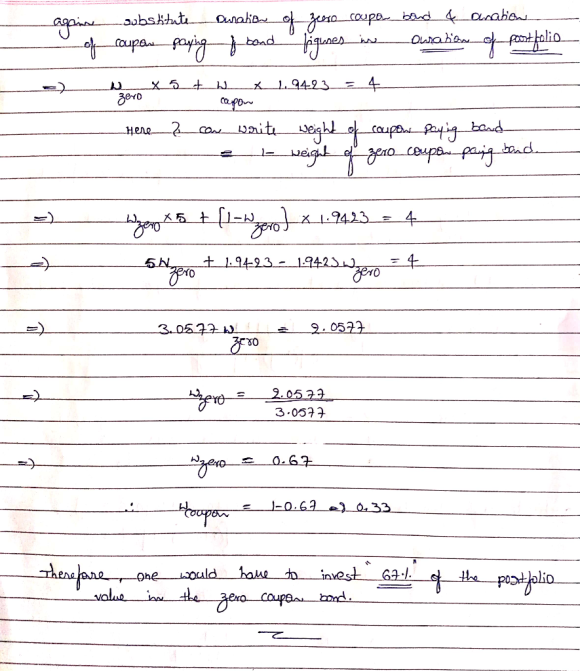 again substitute duration of zero coupon bond & duration
of coupon paying bond figures in duration of portfolio
=) W zero × 5 + W coupon × 1.9423 = 4
Here I can write weight of coupon paying bond
= 1 - weight of zero coupon paying bond.
=) W zero × 5 + [1-W zero] × 1.9423 = 4
=) 5W zero + 1.9423 - 1.9423 W zero = 4
=) 3.0577 W zero = 2.0577
=) W zero = 2.0577 / 3.0577
=) W zero = 0.67
∴ W coupon = 1-0.67 => 0.33
Therefore, one would have to invest "67%" of the portfolio
value in the zero coupon bond.